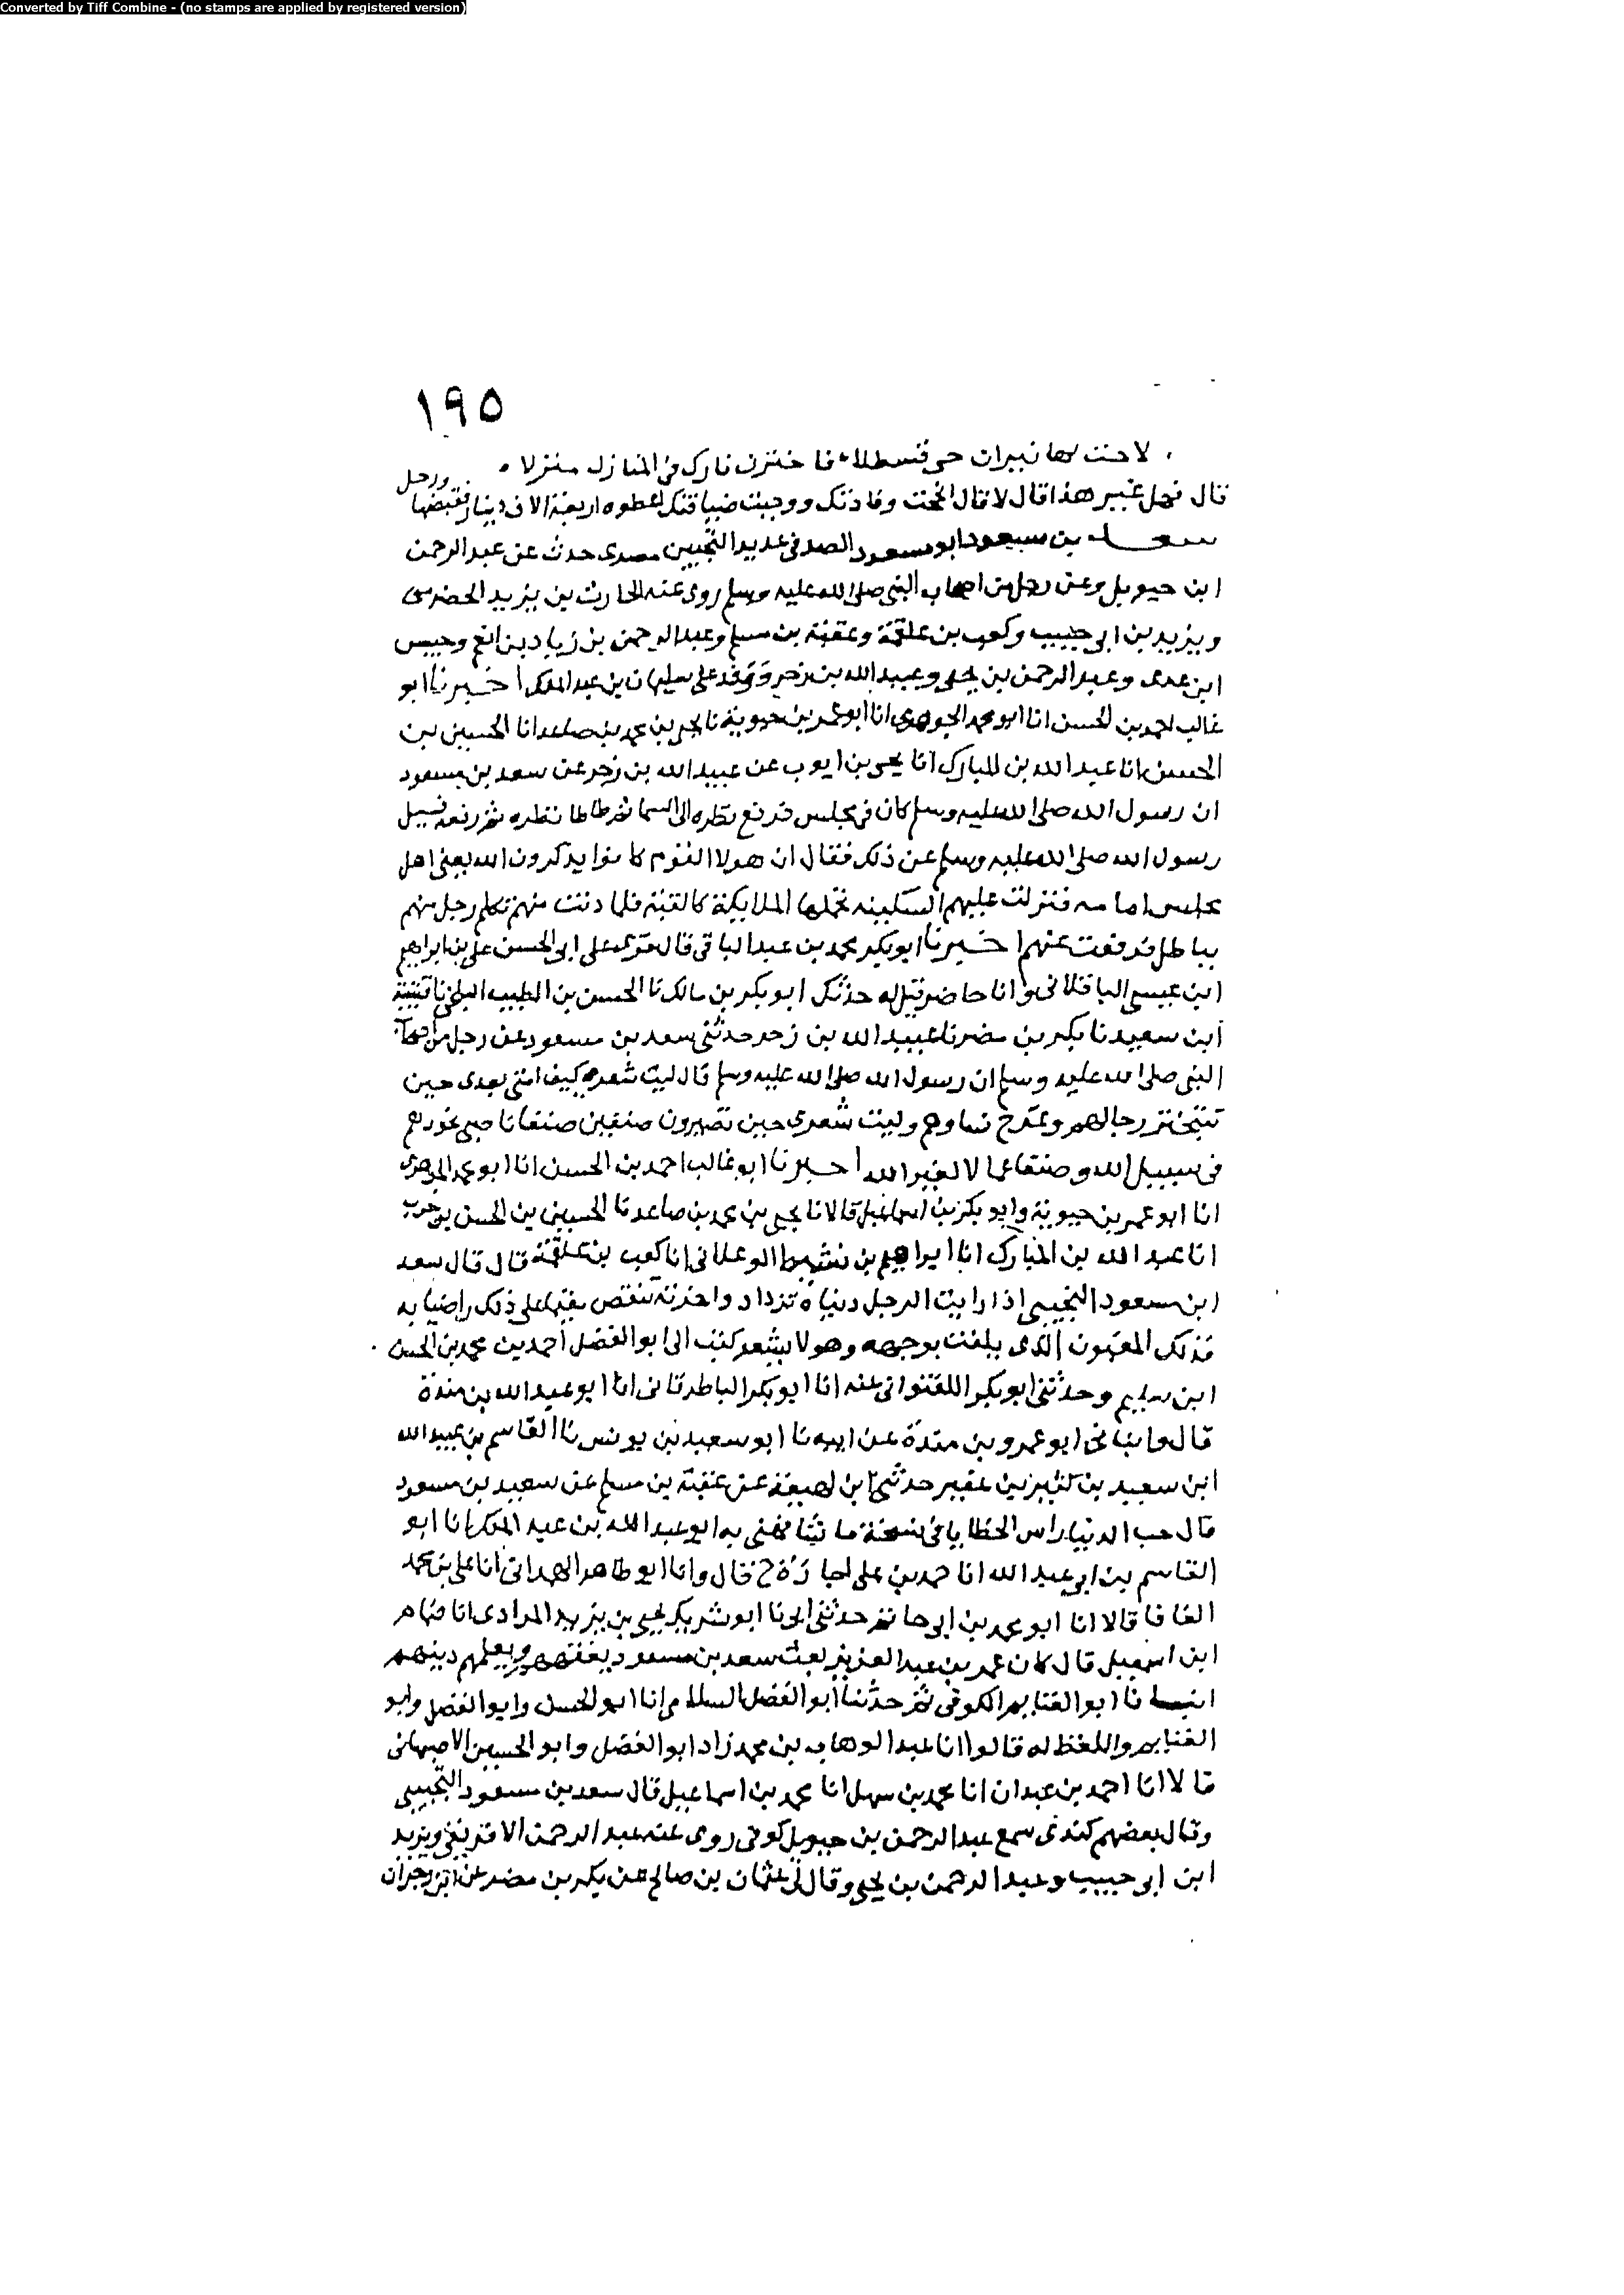 Converted by Tiff Combine - (no stamps are applied by registered version)
١٩٥
لاحت لها نيران حى قسطلا فاخترت نارك فى المنازل منزلا
ورحل
قال فهل غير هذا قال لا قال انخت وفادتك ووجبت ضيافتك اعطوه اربعة الاف دينار فقبضها
سعد بن مسعود ابو مسعود الصدفى عديد التجيبين مصرى حدث عن عبد الرحمن
ابن حيويل وعن رجل من اصحاب النبى صلى الله عليه وسلم روى عنه الحارث بن يزيد الحضرمى
ويزيد بن ابى حبيب وكعب بن علقمة وعقبة بن مسلم وعبد الرحمن بن زياد بن انعم
ابن عدى وعبد الرحمن بن يحيى وعبيد الله بن زحر ووفد على سليمان بن عبد الملك اخبرنا ابو
غالب احمد بن الحسن انا ابو محمد الجوهرى انا ابو عمر بن حيوية نا يحيى بن محمد بن صاعد انا الحسين بن
الحسن انا عبد الله بن المبارك انا يحيى بن ايوب عن عبيد الله بن زحر عن سعد بن مسعود
ان رسول الله صلى الله عليه وسلم كان فى مجلس فرفع نظره الى السما ثم طاطا نظره ثم رفعه فسيل
رسول الله صلى الله عليه وسلم عن ذلك فقال ان هولا القوم كانوا يذكرون الله يعنى اهل
مجلس امامه فنزلت عليهم السكينه تحملها الملايكة كالقبة فلما دنت منهم تكلم رجل منهم
بباطل فرفعت عنهم اخبرنا ابو بكر محمد بن عبد الباقى قال قرى على ابى الحسن على بن ابراهيم
ابن عيسى الباقلانى وانا حاضر قيل له حدثكم ابو بكر بن مالك نا الحسن بن الطيب البلخى نا قتيبة
ابن سعيد نا بكر بن مضر نا عبيد الله بن زحر حدثنى سعد بن مسعود عن رجل من اصحاب
النبى صلى الله عليه وسلم ان رسول الله صلى الله عليه وسلم قال ليت شعرى كيف امتى بعدى حين
تتبختر رجالهم وتمرح نساوهم وليت شعرى حين تصيرون صنفين صنفا ناصبى نحورهم
فى سبيل الله وصنفا عمالا لغير الله اخبرنا ابو غالب احمد بن الحسن انا ابو محمد الجوهرى
انا ابو عمر بن حيوية وابو بكر بن اسماعيل قالا نا يحيى بن محمد بن صاعد نا الحسين بن الحسن بن حرب
انا عبد الله بن المبارك انا ابراهيم بن نشيط الوعلانى انا كعب بن علقمة قال قال سعد
ابن مسعود التجيبى اذا رايت الرجل دنياه تزداد واخرته تنقص مقيما على ذلك راضيا به
فذلك المغبون الذى يلعب بوجهه وهو لا يشعر كتب الى ابو الفضل احمد بن محمد بن الحسن
ابن سليم وحدثنى ابو بكر اللفتوانى عنه انا ابو بكر الباطرقانى انا ابو عبد الله بن مندة
قال وانبانى ابو عمرو بن مندة عن ابيه نا ابو سعيد بن يونس نا القاسم بن عبيد الله
ابن سعيد بن كثير بن عفير حدثنى ابن لهيعة عن عقبة بن مسلم عن سعيد بن مسعود
قال حب الدنيا راس الخطايا فى نسخة ما شافهنى به ابو عبد الله بن عبد الملك انا ابو
القاسم بن ابى عبد الله انا حمد بن على اجازة ح قال وانا ابو طاهر الهمدانى انا على بن محمد
الفافا قالا انا ابو محمد بن ابى حاتم حدثنى ابى نا ابو شريك يحيى بن يزيد المرادى انا ضمام
ابن اسمعيل قال كان عمر بن عبد العزيز بعث سعد بن مسعود يفقههم ويعلمهم دينهم
انبانا ابو الغنايم الكوفى ثم حدثنا ابو الفضل السلامى انا ابو الحسن وابو الفضل وابو
الغنايم واللفظ له قالوا انا عبد الوهاب بن محمد زاد ابو الفضل وابو الحسين الاصبهانى
قالا انا احمد بن عبدان انا محمد بن سهل انا محمد بن اسماعيل قال سعد بن مسعود التجيبى
وقال بعضهم كندى سمع عبد الرحمن بن حيويل كوفى روى عنه عبد الرحمن الافريقى ويزيد
ابن ابى حبيب وعبد الرحمن بن يحيى وقال لى عثمان بن صالح عن بكر بن مضر عن ابن زحر ان